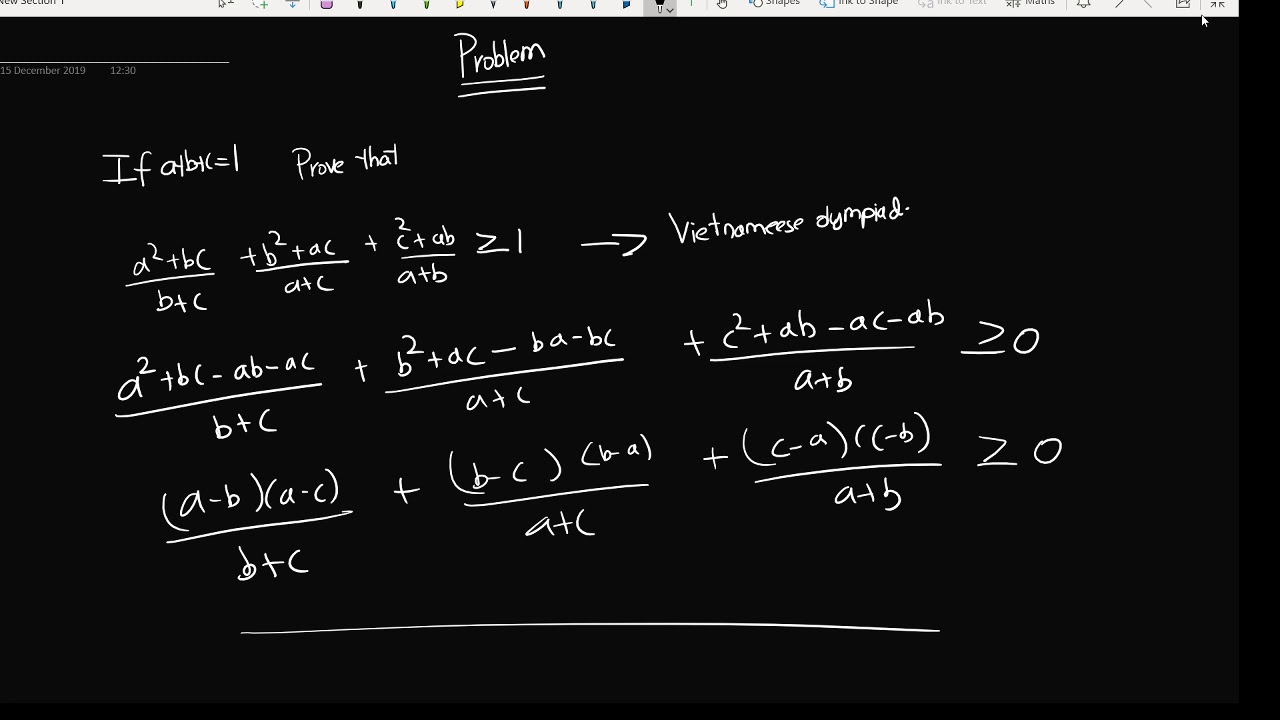 New Section 1 Shapes Ink to Shape Ink to Text Maths
Problem
15 December 2019 12:30
If a+b+c=1 Prove that
(a²+bc)/(b+c) + (b²+ac)/(a+c) + (c²+ab)/(a+b) ≥ 1 → Vietnameese olympiad.
(a²+bc-ab-ac)/(b+c) + (b²+ac-ba-bc)/(a+c) + (c²+ab-ac-ab)/(a+b) ≥ 0
(a-b)(a-c)/(b+c) + (b-c)(b-a)/(a+c) + (c-a)(c-b)/(a+b) ≥ 0